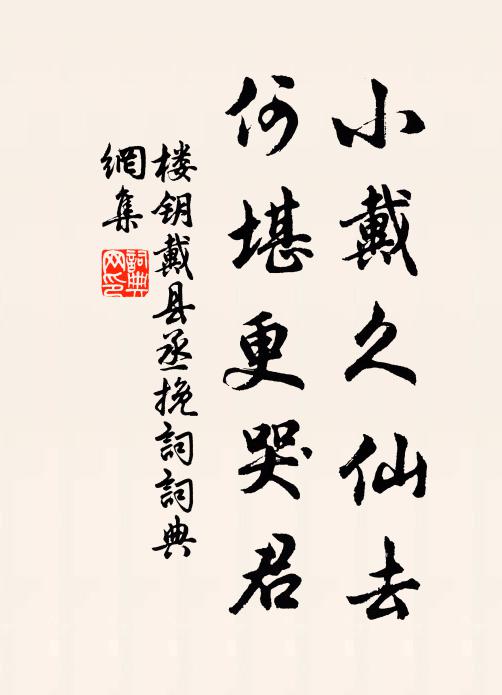 小戴久仙去
何堪更哭君
楼钥戴县丞挽詞詞典
網集
詞典
网印